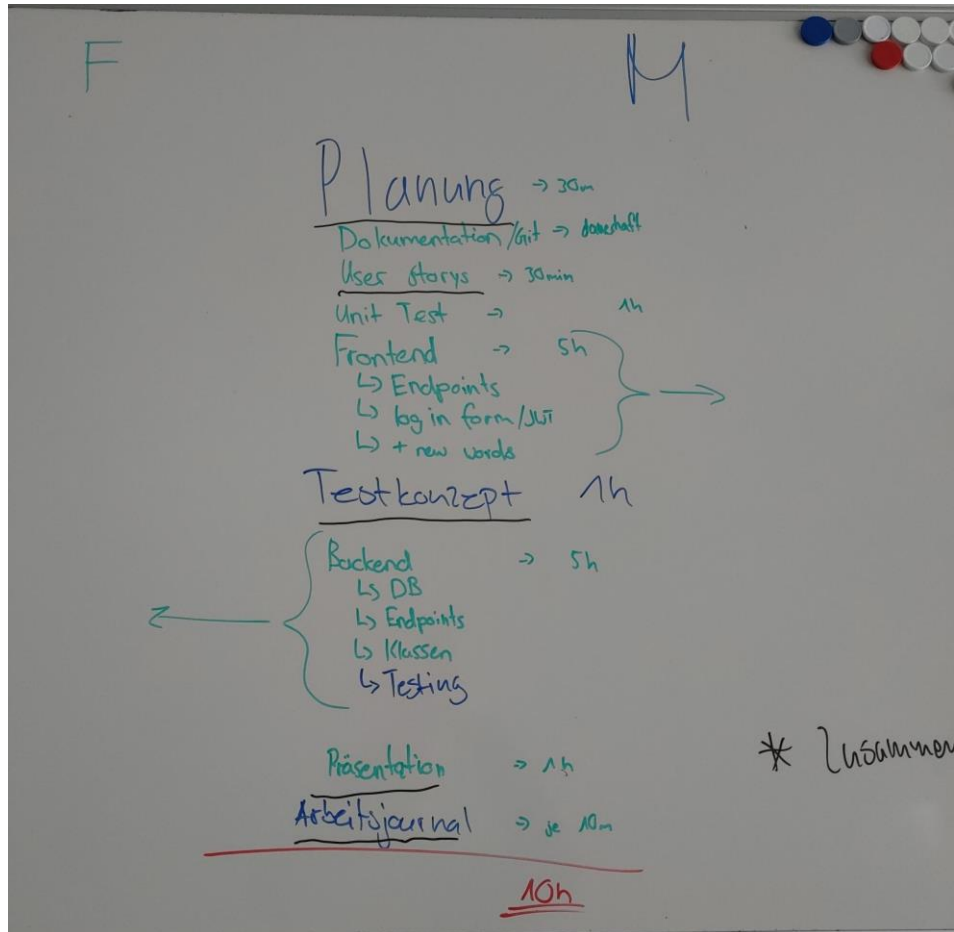 F M
Planung -> 30m
Dokumentation/Git -> dauerhaft
User Storys -> 30min
Unit Test -> 1h
Frontend -> 5h
↳ Endpoints
↳ log in form/JWT
↳ + new words
Testkonzept 1h
Backend -> 5h
↳ DB
↳ Endpoints
↳ Klassen
↳ Testing
* Zusammen
Präsentation -> 1h
Arbeitsjournal -> je 10m
10h